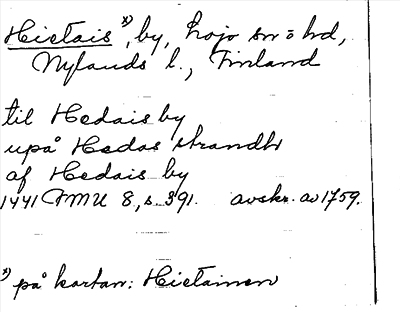 Hietais x), by, Lojo sn o hd,
Nylands l., Finland
til Hedais by
upå Hedas strandh
af Hedais by
1441 FMU 8, s. 391. avskr. av 1759.
x) på kartan: Hietainen